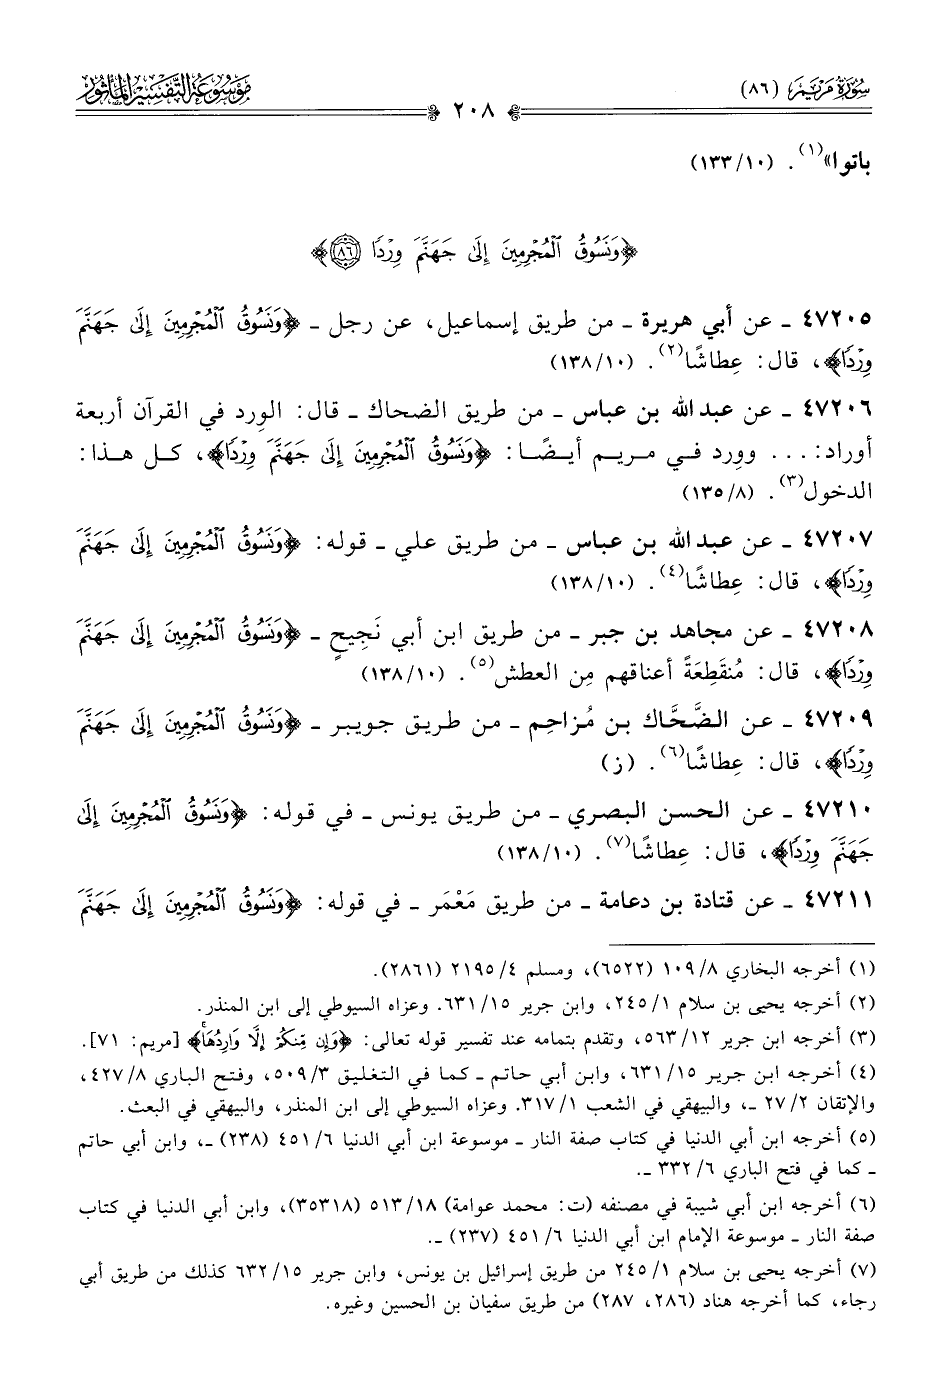 سُورَةُ مَرْيَمَ (٨٦)
٢٠٨
مَوْسُوعَةُ التَّفْسِيرِ المَأْثُور
باتوا»(١). (١٣٣/١٠)
﴿وَنَسُوقُ ٱلْمُجْرِمِينَ إِلَىٰ جَهَنَّمَ وِرْدًا ٨٦﴾
٤٧٢٠٥ ـ عن أبي هريرة ـ من طريق إسماعيل، عن رجل ـ ﴿وَنَسُوقُ ٱلْمُجْرِمِينَ إِلَىٰ جَهَنَّمَ
وِرْدًا﴾، قال: عِطاشًا(٢). (١٣٨/١٠)
٤٧٢٠٦ ـ عن عبد الله بن عباس ـ من طريق الضحاك ـ قال: الوِرد في القرآن أربعة
أوراد: ... وورد في مريم أيضًا: ﴿وَنَسُوقُ ٱلْمُجْرِمِينَ إِلَىٰ جَهَنَّمَ وِرْدًا﴾، كل هذا:
الدخول(٣). (١٣٥/٨)
٤٧٢٠٧ ـ عن عبد الله بن عباس ـ من طريق علي ـ قوله: ﴿وَنَسُوقُ ٱلْمُجْرِمِينَ إِلَىٰ جَهَنَّمَ
وِرْدًا﴾، قال: عِطاشًا(٤). (١٣٨/١٠)
٤٧٢٠٨ ـ عن مجاهد بن جبر ـ من طريق ابن أبي نَجِيحٍ ـ ﴿وَنَسُوقُ ٱلْمُجْرِمِينَ إِلَىٰ جَهَنَّمَ
وِرْدًا﴾، قال: مُنقَطِعَةً أعناقهم مِن العطش(٥). (١٣٨/١٠)
٤٧٢٠٩ ـ عن الضَّحَّاك بن مُزاحِم ـ من طريق جويبر ـ ﴿وَنَسُوقُ ٱلْمُجْرِمِينَ إِلَىٰ جَهَنَّمَ
وِرْدًا﴾، قال: عِطاشًا(٦). (ز)
٤٧٢١٠ ـ عن الحسن البصري ـ من طريق يونس ـ في قوله: ﴿وَنَسُوقُ ٱلْمُجْرِمِينَ إِلَىٰ
جَهَنَّمَ وِرْدًا﴾، قال: عِطاشًا(٧). (١٣٨/١٠)
٤٧٢١١ ـ عن قتادة بن دعامة ـ من طريق مَعْمَر ـ في قوله: ﴿وَنَسُوقُ ٱلْمُجْرِمِينَ إِلَىٰ جَهَنَّمَ
(١) أخرجه البخاري ٨/ ١٠٩ (٦٥٢٢)، ومسلم ٤/ ٢١٩٥ (٢٨٦١).
(٢) أخرجه يحيى بن سلام ١/ ٢٤٥، وابن جرير ١٥/ ٦٣١. وعزاه السيوطي إلى ابن المنذر.
(٣) أخرجه ابن جرير ١٢/ ٥٦٣، وتقدم بتمامه عند تفسير قوله تعالى: ﴿وَإِن مِّنكُمْ إِلَّا وَارِدُهَا﴾ [مريم: ٧١].
(٤) أخرجه ابن جرير ١٥/ ٦٣١، وابن أبي حاتم ـ كما في التغليق ٣/ ٥٠٩، وفتح الباري ٨/ ٤٢٧،
والإتقان ٢/ ٢٧ ـ، والبيهقي في الشعب ١/ ٣١٧. وعزاه السيوطي إلى ابن المنذر، والبيهقي في البعث.
(٥) أخرجه ابن أبي الدنيا في كتاب صفة النار ـ موسوعة ابن أبي الدنيا ٦/ ٤٥١ (٢٣٨) ـ، وابن أبي حاتم
ـ كما في فتح الباري ٦/ ٣٣٢ ـ.
(٦) أخرجه ابن أبي شيبة في مصنفه (ت: محمد عوامة) ١٨/ ٥١٣ (٣٥٣١٨)، وابن أبي الدنيا في كتاب
صفة النار ـ موسوعة الإمام ابن أبي الدنيا ٦/ ٤٥١ (٢٣٧) ـ.
(٧) أخرجه يحيى بن سلام ١/ ٢٤٥ من طريق إسرائيل بن يونس، وابن جرير ١٥/ ٦٣٢ كذلك من طريق أبي
رجاء، كما أخرجه هناد (٢٨٦، ٢٨٧) من طريق سفيان بن الحسين وغيره.